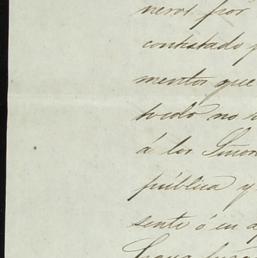 neros por
contratado p
mentos que
todo no
á los Señor
pública y
sente ó en a